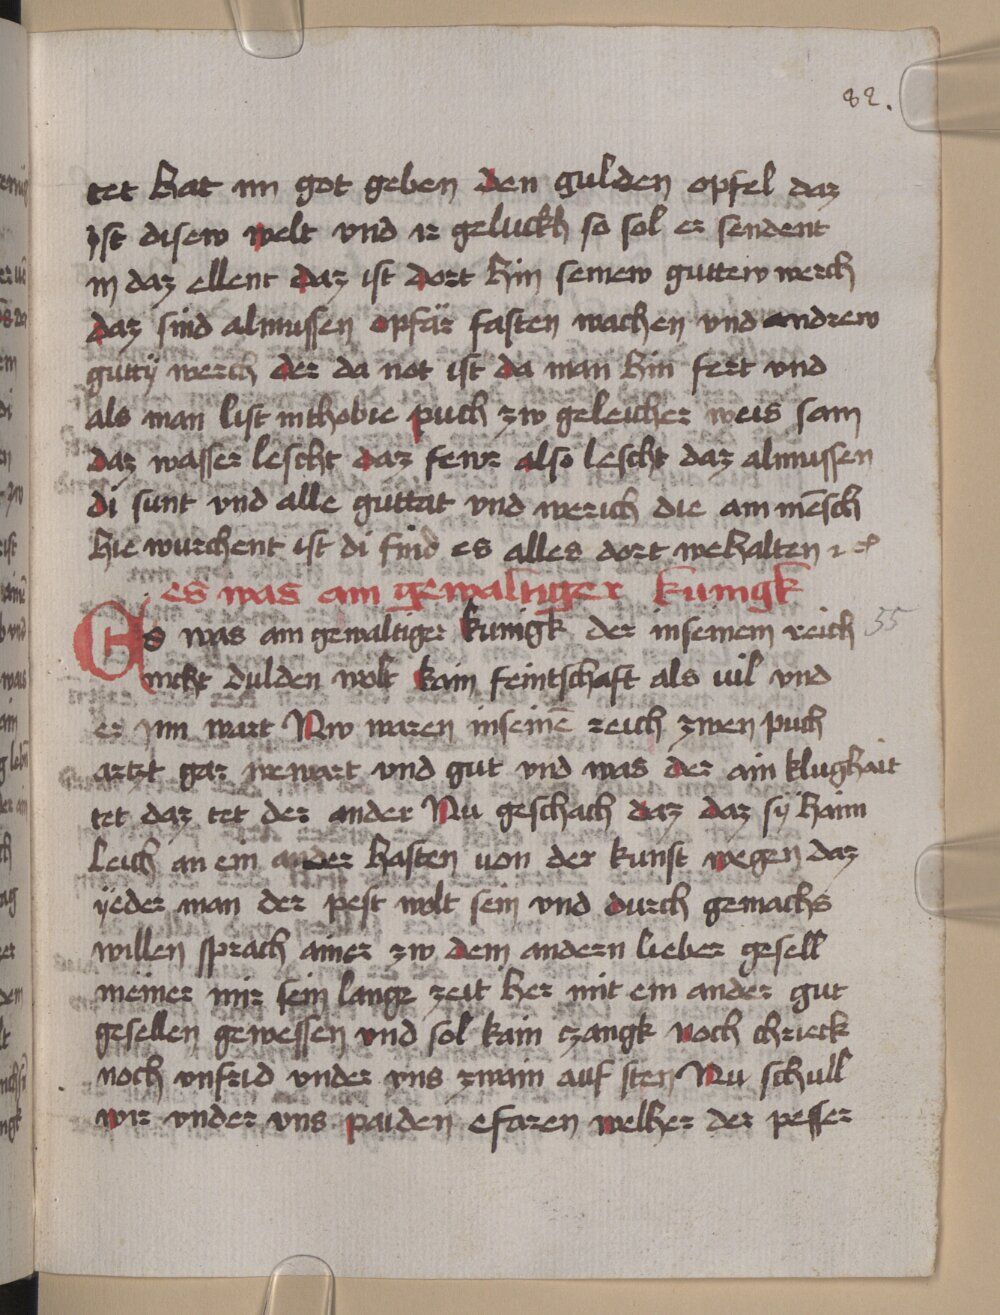 82.
tet hat im got geben den gulden opfel daz
ist disew welt vnd ir geluckh so sol er sendent
in daz ellent daz ist dort hin seinew guttew werch
daz sind almussen opfär fasten wachen vnd andrew
guttÿ werch der da not ist da man hin fert vnd
als man list in thobie puch zw geleicher weis sam
daz wasser lescht daz fewr also lescht daz almussen
di sunt vnd alle guttat vnd werich die am mēsch
hie wurchent ist di find es alles dort wehalten
es was ain gewaltiger kunigk
Es was ain gewaltiger kunigk der in seinem reich 55
nicht dulden wolt kain feintschaft als uil vnd
er ym wart Nw waren in seinē reich zwen puch
artzt gar wewart vnd gut vnd was der ain klughait
tet daz tet der ander Nu geschach daz daz sÿ haim
leich an ein ander hasten von der kunst wegen daz
ÿeder man der pest wolt sein vnd durch gemachs
willen sprach ainer zw dem andern lieber gesell
meiner mir sein lange zeit her mit ein ander gut
gesellen gewessen vnd sol kain czangk noch chrieck
noch vnfrid vnder vns zwain auf sten Nu schull
wir vnder vns paiden efaren welher der pesser